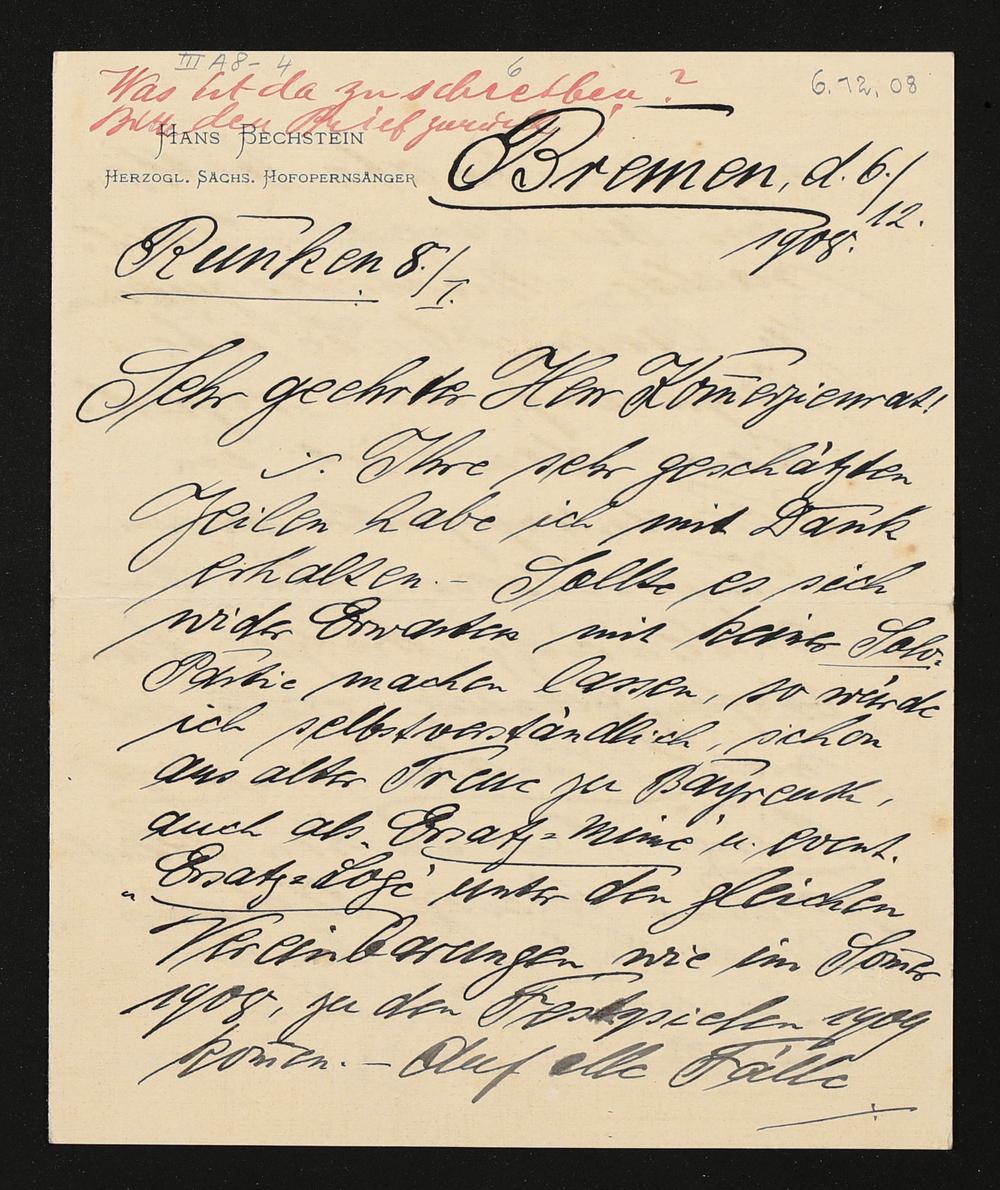 III A 8 - 4
6
6.12.08
Was ist da zu schreiben?
Bitte den Brief zurück!
HANS BECHSTEIN
HERZOGL. SÄCHS. HOFOPERNSÄNGER
Bremen, d. 6./12.
1908.
Runken 8./I.
Sehr geehrter Herr Kom̄erzienrat!
Ihre sehr geschätzten
Zeilen habe ich mit Dank
erhalten. – Sollte es sich
wider Erwarten mit keiner Solo-
Partie machen lassen, so würde
ich selbstverständlich, schon
aus alter Treue zu Bayreuth,
auch als „Ersatz-Mime" u. event.
„Ersatz-Loge" unter den gleichen
Vereinbarungen wie im Som̄er
1908, zu den Festspielen 1909
kom̄en. – Auf alle Fälle